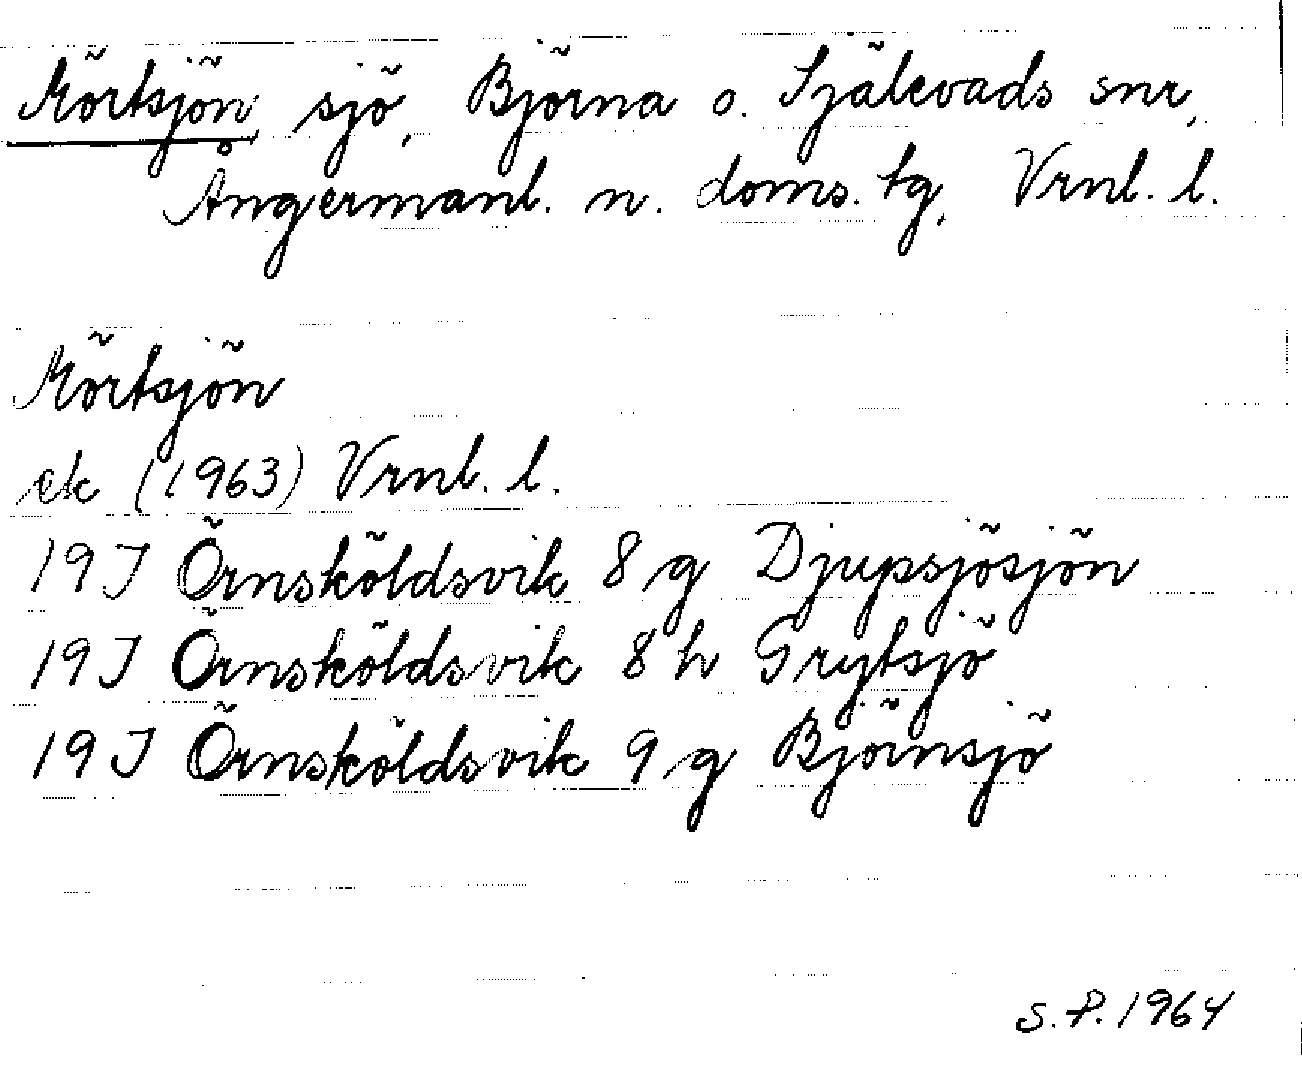 Mörtsjön sjö, Björna o. Själevads snr,
Ångermanl. n. doms. tg, Vrnl. l.
Mörtsjön
ek (1963) Vrnl. l.
19J Örnsköldsvik 8g Djupsjösjön
19J Örnsköldsvik 8h Grytsjö
19J Örnsköldsvik 9g Björnsjö
S.P. 1964